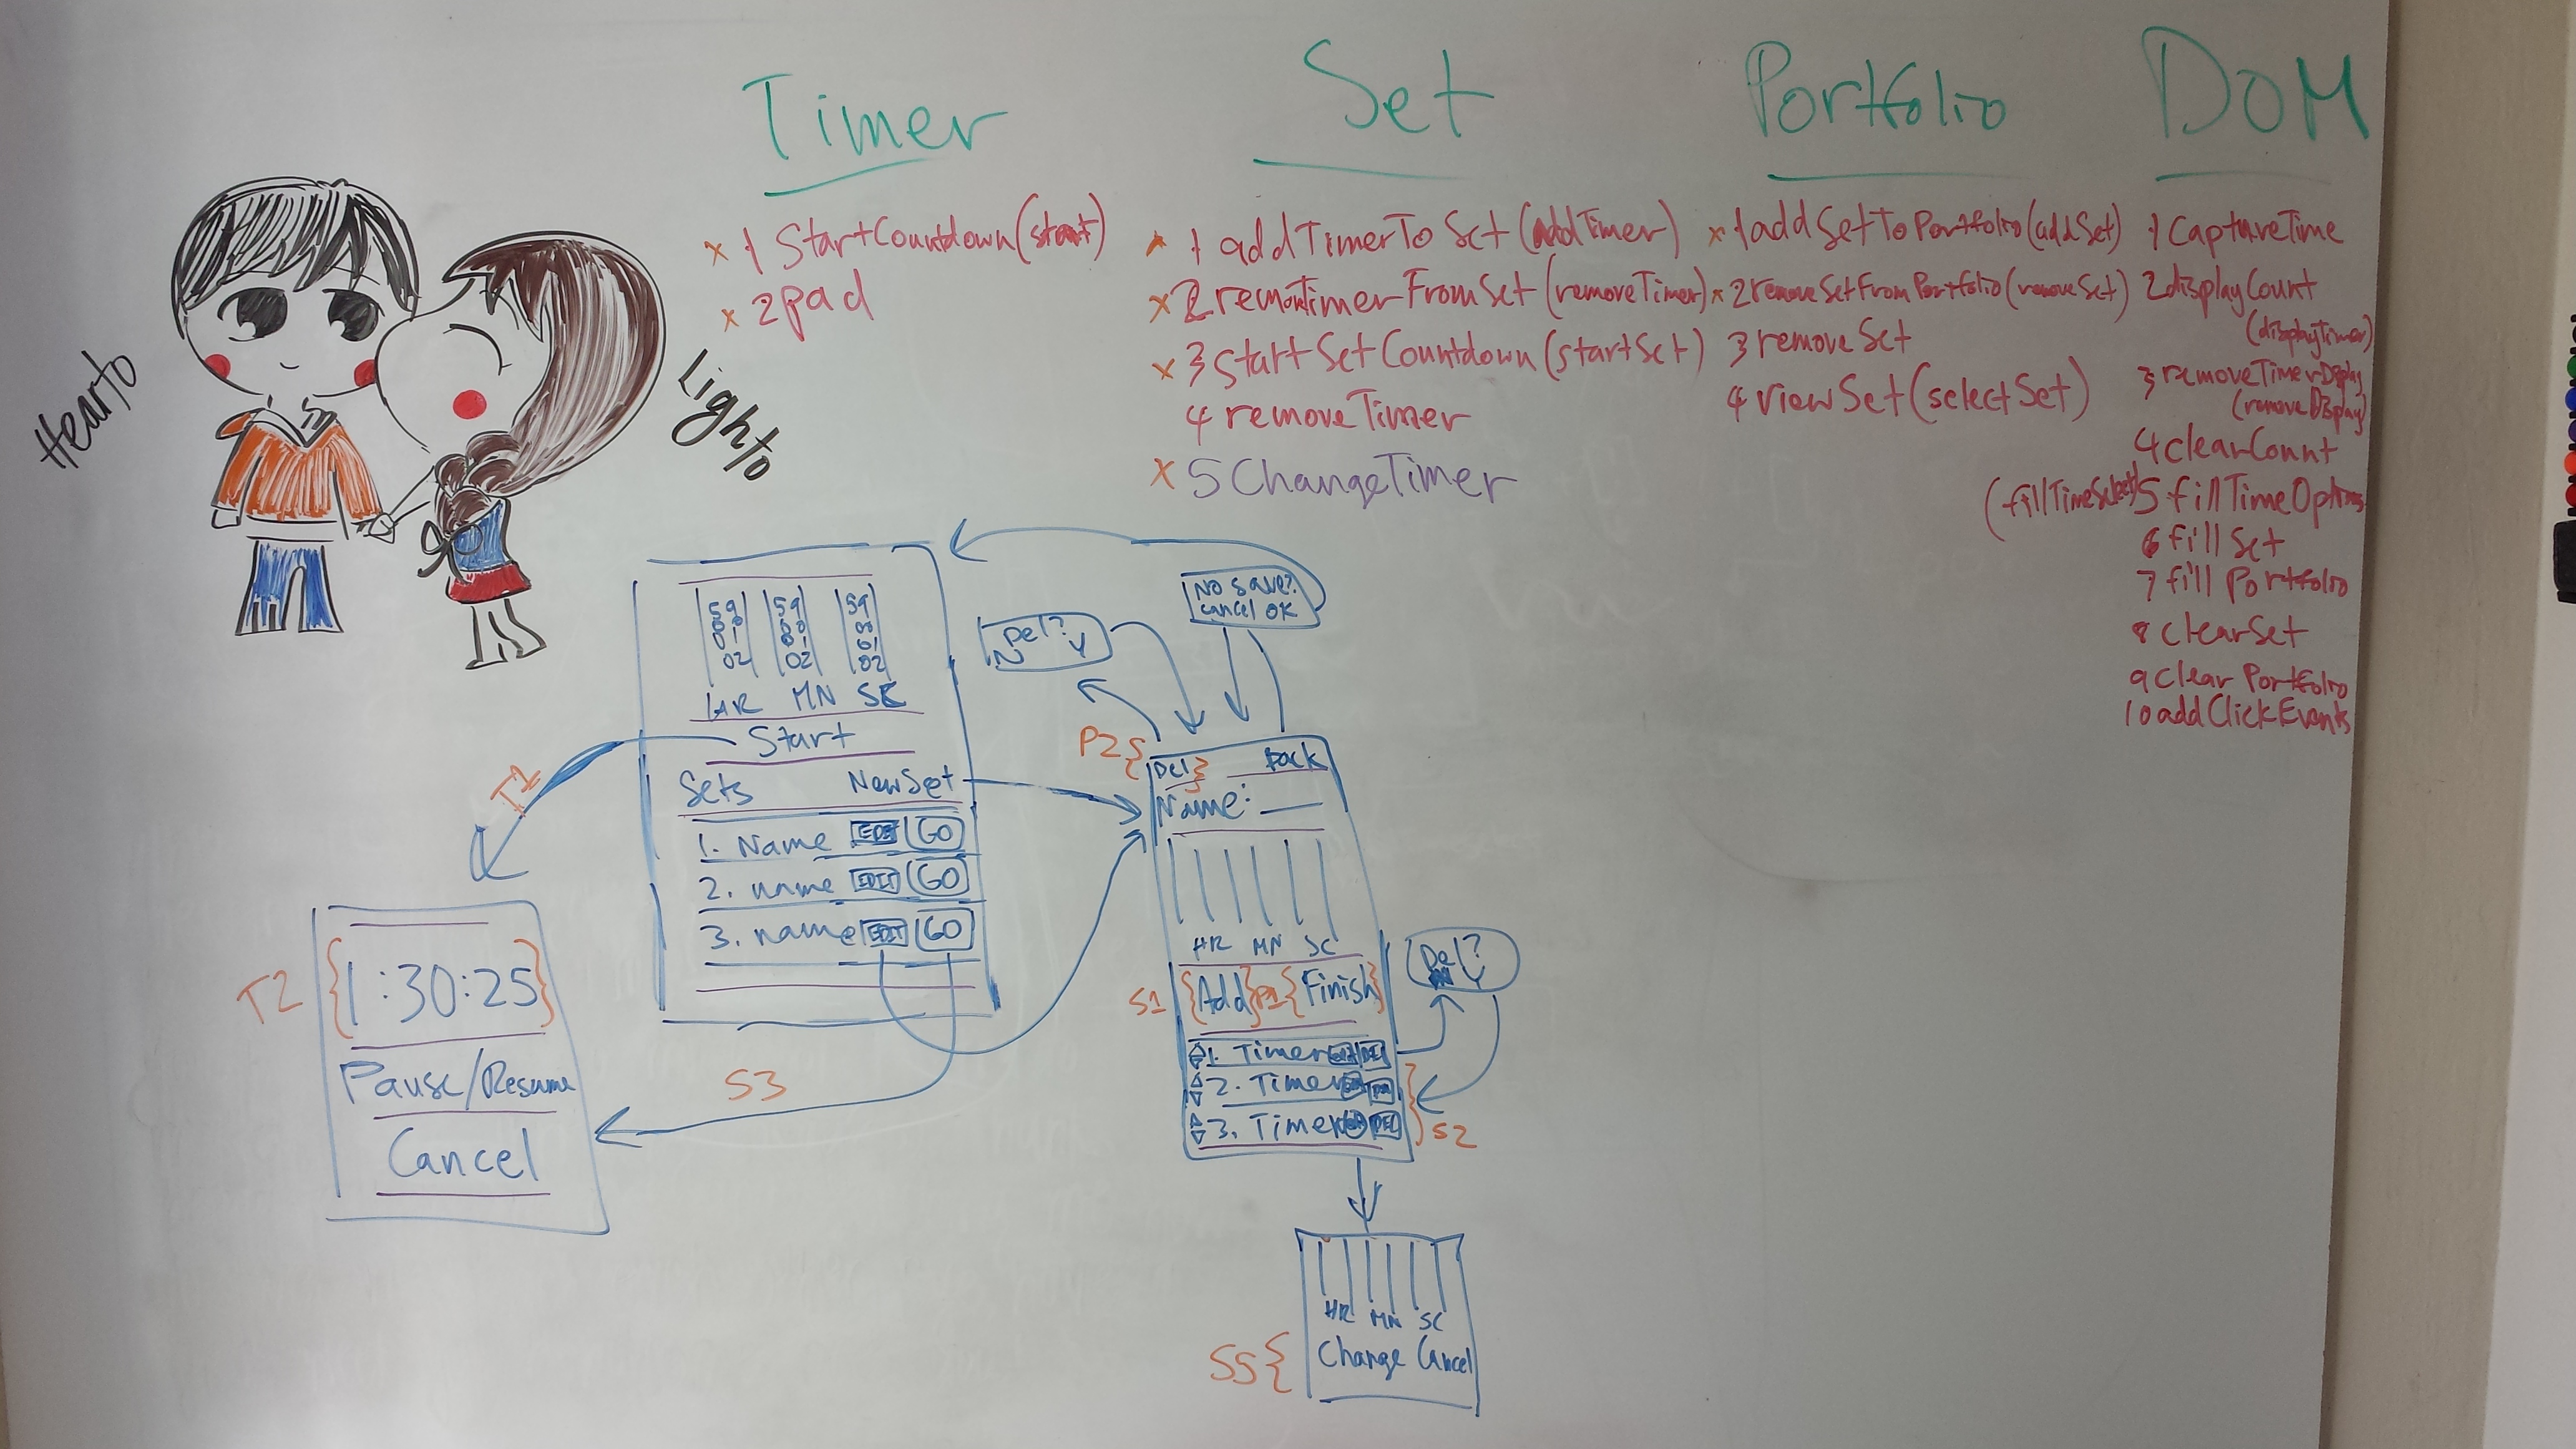 Timer
x 1 StartCountdown(start)
x 2 pad
Set
x 1 addTimerToSet (addTimer)
x 2 removeTimerFromSet (removeTimer)
x 3 startSetCountdown (startSet)
4 removeTimer
x 5 ChangeTimer
Portfolio
x 1 addSetToPortfolio (addSet)
x 2 removeSetFromPortfolio (removeSet)
3 removeSet
4 viewSet (selectSet)
DOM
1 CaptureTime
2 displayCount
(displayTimer)
3 removeTimerDisplay
(removeDisplay)
4 clearCount
(fillTimeSelect) 5 fillTimeOptions
6 fill Set
7 fill Portfolio
8 clearSet
9 clear Portfolio
10 addClickEvents
Hearto
Lighto
59 59 59
00 00 00
01 01 01
02 02 02
HR MN SC
Start
Sets NewSet
1. Name EDIT GO
2. name EDIT GO
3. name EDIT GO
T1
T2 {1:30:25}
Pause/Resume
Cancel
S3
Del?
N Y
No save?
cancel OK
P2{
Del} Back
Name:
HR MN SC
S1 {Add} P1 {Finish}
1. Timer DEL
2. Timer DEL
3. Timer DEL
} S2
Del?
N Y
HR MN SC
S5{ Change Cancel